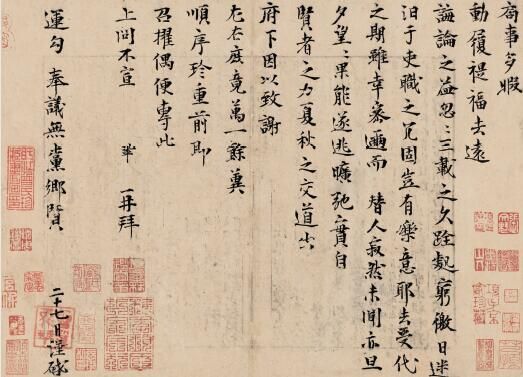 局事多暇
動履禔福去遠
誨論之益忽忽三載之久跧處窮徼日迷
汨于吏職之冗固豈有樂意耶去受代
之期雖幸密邇而 替人寂然未聞亦旦
夕望望果能遂逃曠弛實自
賢者之力夏秋之交道出
府下因以致謝
左右庶竟萬一餘冀
順序珍重前即
召擢偶便專此
上問不宣 鞏 再拜
運勾 奉議無黨鄉賢
二十七日謹啟